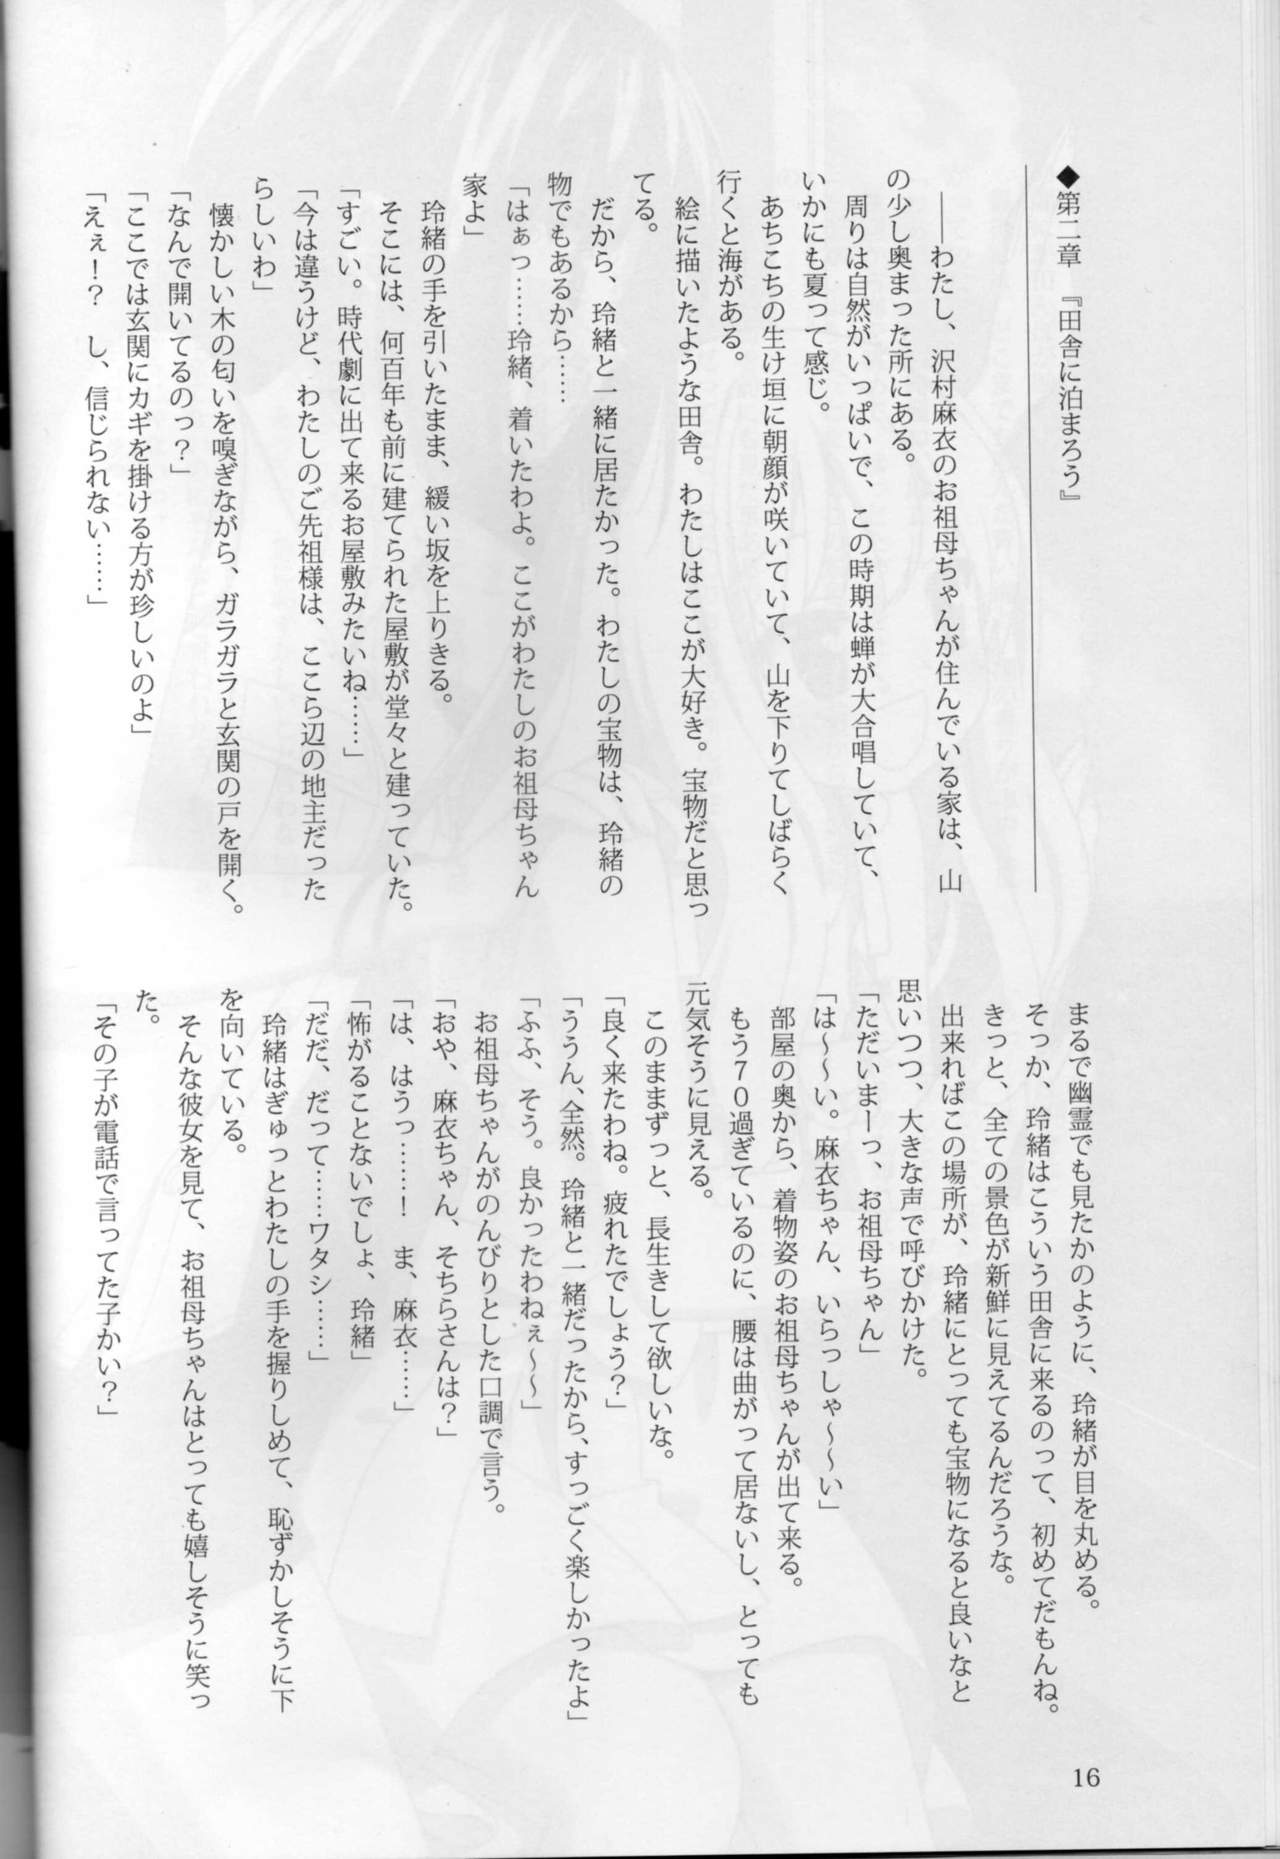 ◆第二章　『田舎に泊まろう』
――わたし、沢村麻衣のお祖母ちゃんが住んでいる家は、山
の少し奥まった所にある。
周りは自然がいっぱいで、この時期は蝉が大合唱していて、
いかにも夏って感じ。
あちこちの生け垣に朝顔が咲いていて、山を下りてしばらく
行くと海がある。
絵に描いたような田舎。わたしはここが大好き。宝物だと思っ
てる。
だから、玲緒と一緒に居たかった。わたしの宝物は、玲緒の
物でもあるから……
「はぁっ……玲緒、着いたわよ。ここがわたしのお祖母ちゃん
家よ」
玲緒の手を引いたまま、緩い坂を上りきる。
そこには、何百年も前に建てられた屋敷が堂々と建っていた。
「すごい。時代劇に出て来るお屋敷みたいね……」
「今は違うけど、わたしのご先祖様は、ここら辺の地主だった
らしいわ」
懐かしい木の匂いを嗅ぎながら、ガラガラと玄関の戸を開く。
「なんで開いてるのっ？」
「ここでは玄関にカギを掛ける方が珍しいのよ」
「えぇ！？　し、信じられない……」
まるで幽霊でも見たかのように、玲緒が目を丸める。
そっか、玲緒はこういう田舎に来るのって、初めてだもんね。
きっと、全ての景色が新鮮に見えてるんだろうな。
出来ればこの場所が、玲緒にとっても宝物になると良いなと
思いつつ、大きな声で呼びかけた。
「ただいまーっ、お祖母ちゃん」
「は～～い。麻衣ちゃん、いらっしゃ～～い」
部屋の奥から、着物姿のお祖母ちゃんが出て来る。
もう７０過ぎているのに、腰は曲がって居ないし、とっても
元気そうに見える。
このままずっと、長生きして欲しいな。
「良く来たわね。疲れたでしょう？」
「ううん、全然。玲緒と一緒だったから、すっごく楽しかったよ」
「ふふ、そう。良かったわねぇ～～」
お祖母ちゃんがのんびりとした口調で言う。
「おや、麻衣ちゃん、そちらさんは？」
「は、はうっ……！　ま、麻衣……」
「怖がることないでしょ、玲緒」
「だだ、だって……ワタシ……」
玲緒はぎゅっとわたしの手を握りしめて、恥ずかしそうに下
を向いている。
そんな彼女を見て、お祖母ちゃんはとっても嬉しそうに笑っ
た。
「その子が電話で言ってた子かい？」
16